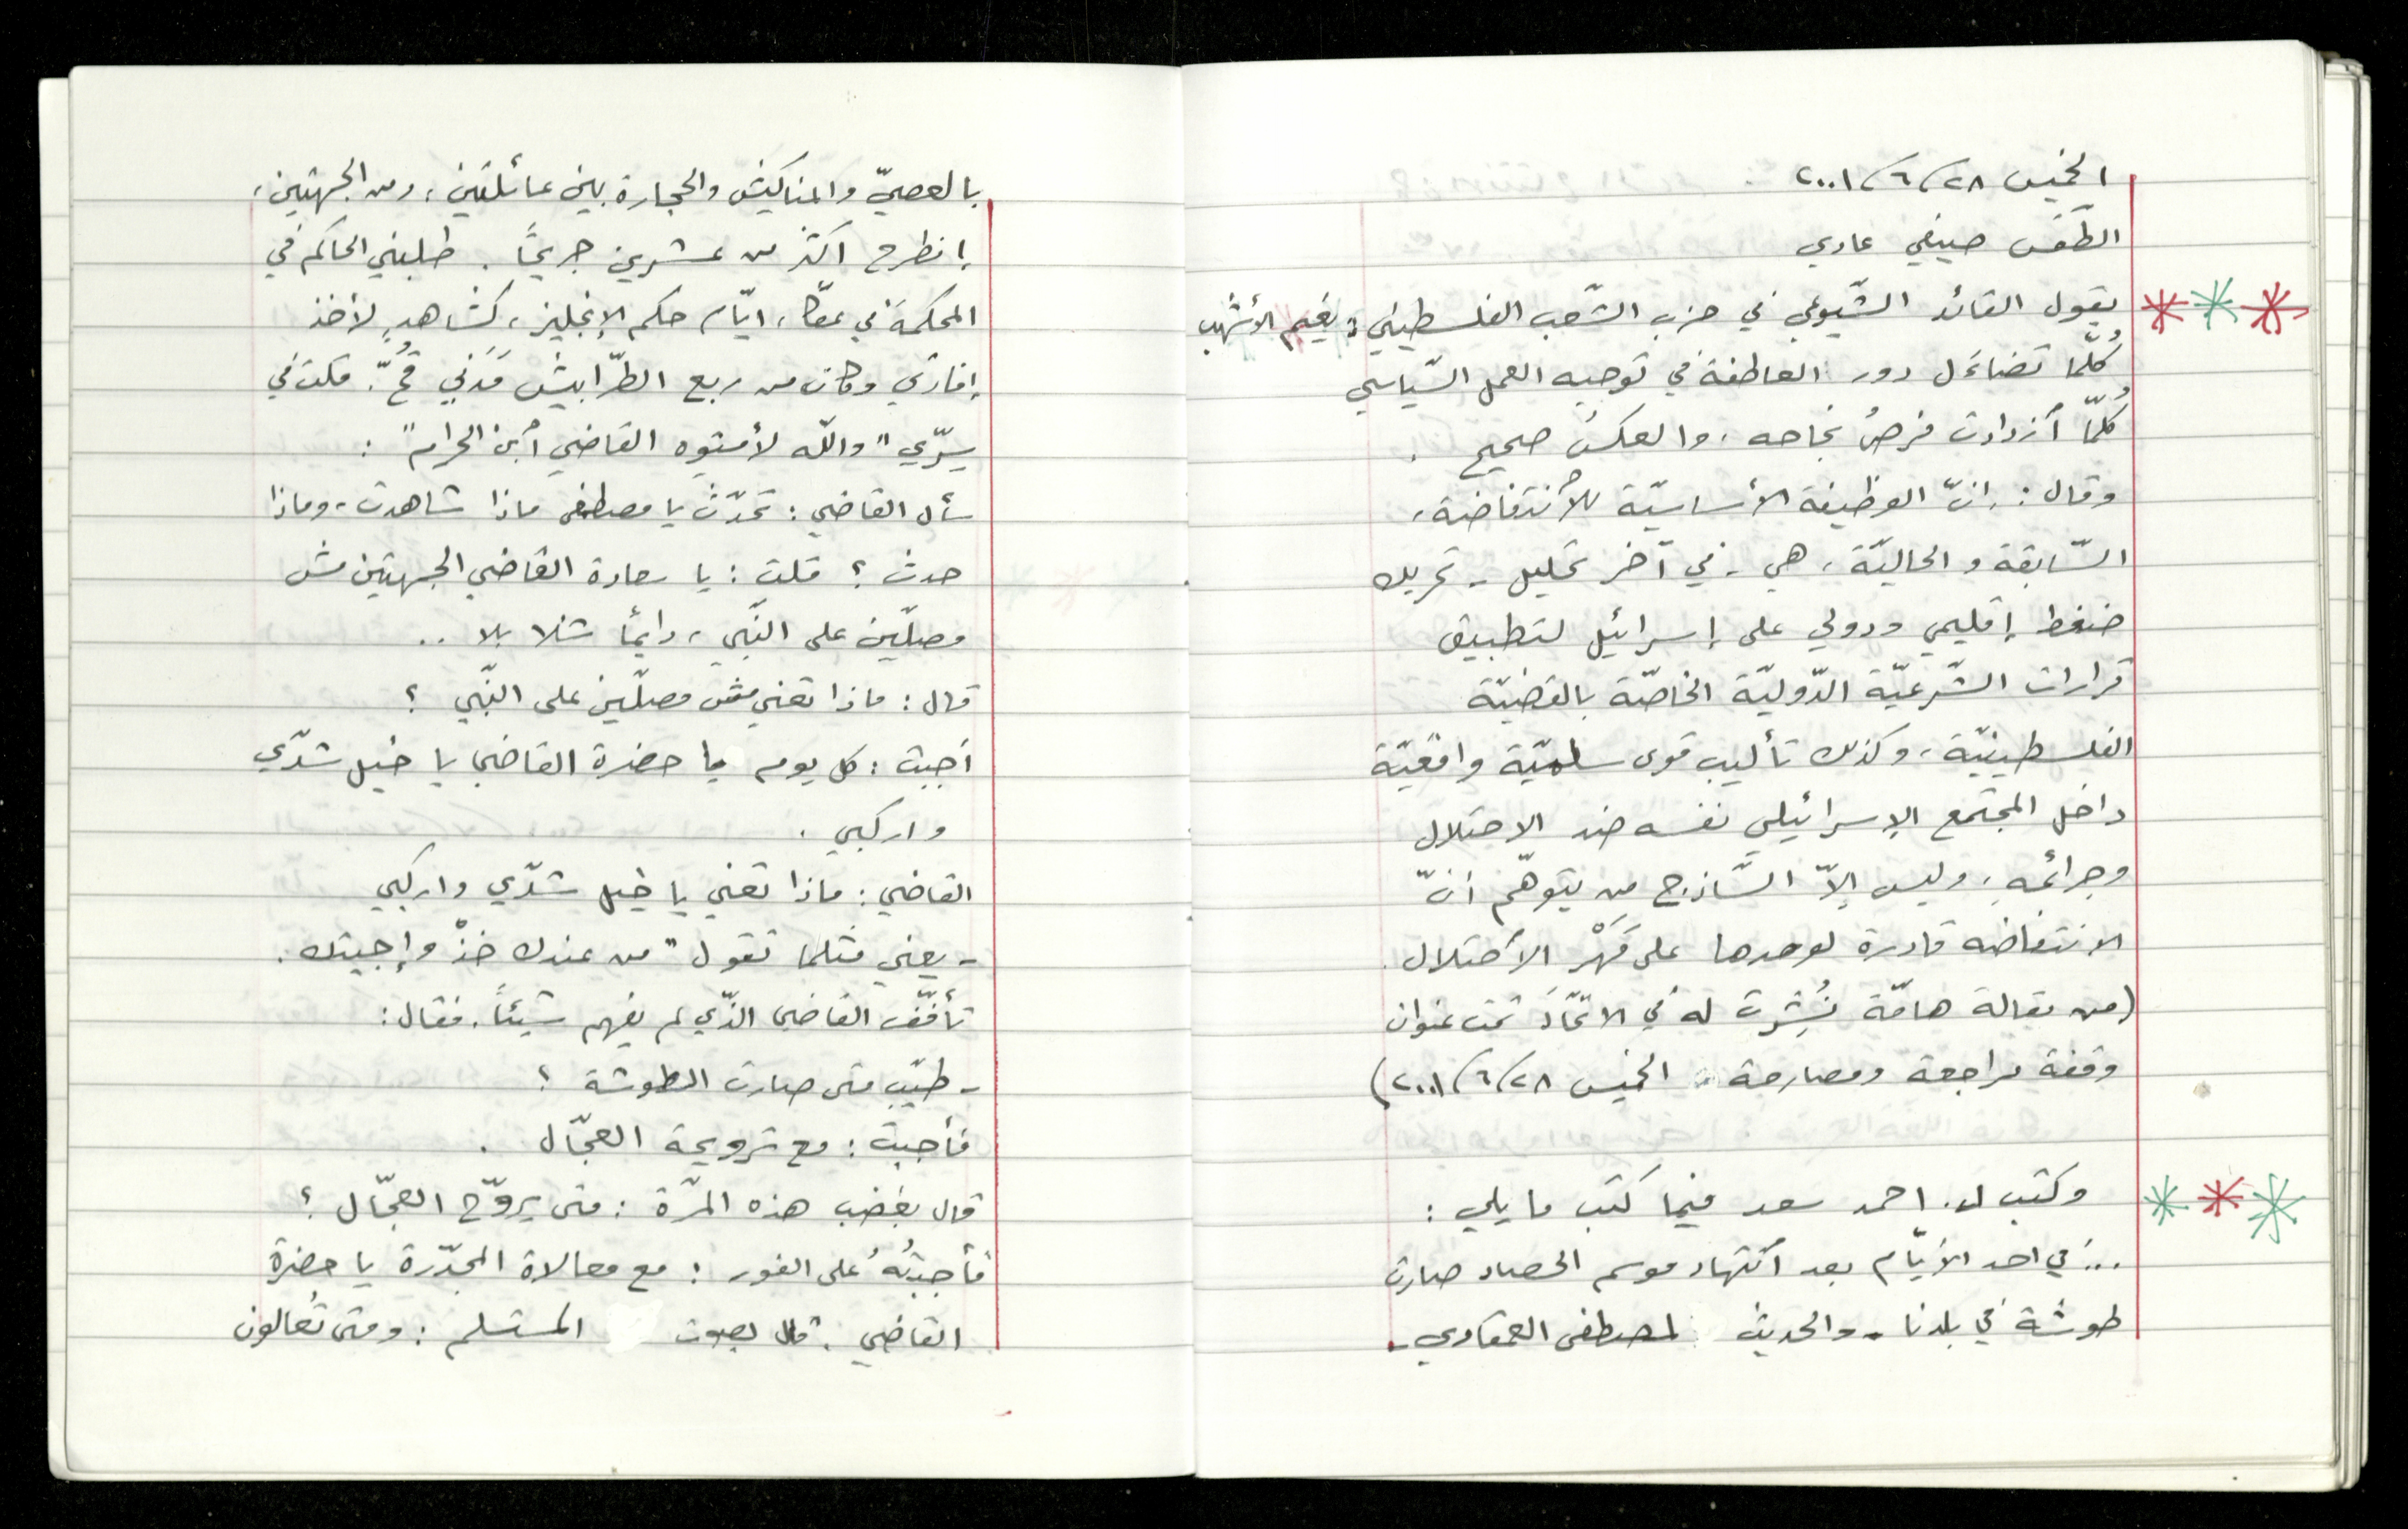 الخميس ٢٠٠١/٦/٢٨
الطّقس صيفي عادي
يقول القائد الشّيوعي في حزب الشّعب الفلسطيني: نعيم الأشهب
كُلّما تضاءَل دور العاطفة في توجيه العمل السّياسي
كُلّما أزدادت فرصُ نجاحه، والعكسُ صحيح.
وقال: إنّ الوظيفة الأساسيّة للأنتفاضة،
السّابقة والحاليّة، هي - في آخر تحليل - تحريك
ضغط إقليمي ودولي على إسرائيل لتطبيق
قرارات الشّرعيّة الدّوليّة الخاصّة بالقضيّة
الفلسطينيّة، وكذلك تأليب قوى سلميّة واقعيّة
داخل المجتمع الإسرائيلي نفسه ضد الاحتلال
وجرائمهِ، وليس إلاّ السَّاذج من يتوهّم أنّ
الانتفاضه قادرة لوحدها على قَهْر الأحتلال.
(من مقالة هامّة نُشِرت له في الاتّحاد تحت عنوان
وقفة مراجعة ومصارحة الخميس ٢٠٠١/٦/٢٨)
وكتب د. احمد سعد فيما كتب ما يلي:
... في احد الأيّام بعد أنتهاء موسم الحصاد صارت
طوشة في بلدنا - والحديث لمصطفى العمقاوي -
بالعصيّ والمناكيش والحجارة بين عائلتين، ومن الجهتين،
إنطرح اكثر من عشرين جريحًا. طلبني الحاكم في
المحكمة في عكّا، ايّام حكم الإنجليز، كشاهدٍ لأخذ
إفادتي وكان من ربع الطّرابيش مَدَني قُحّ. قلت في
سِرّي "والله لأمتوه القاضي أبن الحرام":
سأل القاضي: تحدّث يا مصطفى ماذا شاهدت، وماذا
حدث؟ قلت: يا سعادة القاضي الجهتين مش
مصلّين على النّبي، دايمًا شلا بلا ..
قال: ماذا تعني مش مصلّين على النّبي؟
أجبت: كل يوم يا حضرة القاضي يا خيل شدّي
واركبي.
القاضي: ماذا تعني يا خيل شدّي واركبي
- يعني مثلما تقول "من عندك خذْ وإجيتك.
تأفّف القاضي الذّي لم يفهم شيئًا. فقال:
- طيّب متى صارت الطوشة؟
فأجبت: مع ترويحة العجّال.
قال بغضب هذه المرّة: متى يروّح العجّال؟
فأجبتُهُ على الفور: مع معالاة المجدّرة يا حضرة
القاضي. قال بصوت المستسلم: ومتى تُعالون